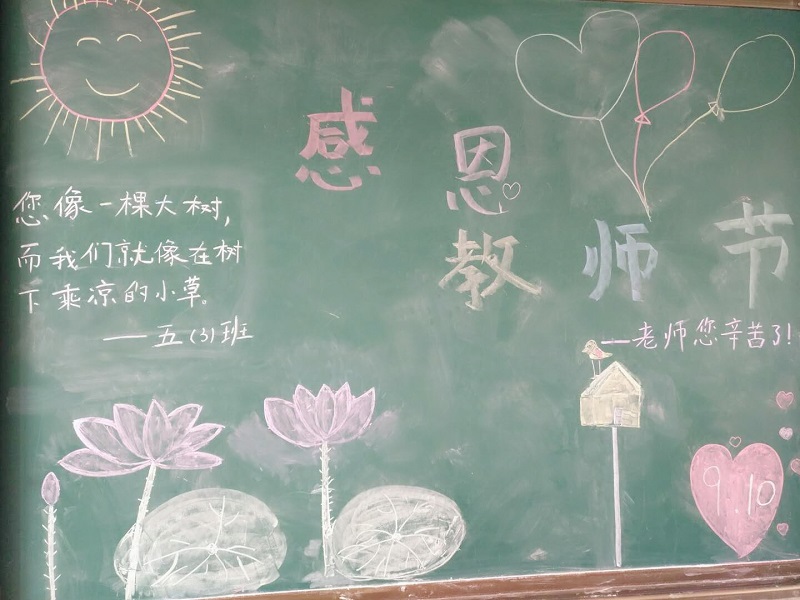 感恩
教师节
您像一棵大树,
而我们就像在树
下乘凉的小草。
——五(3)班
——老师您辛苦了!
9.10